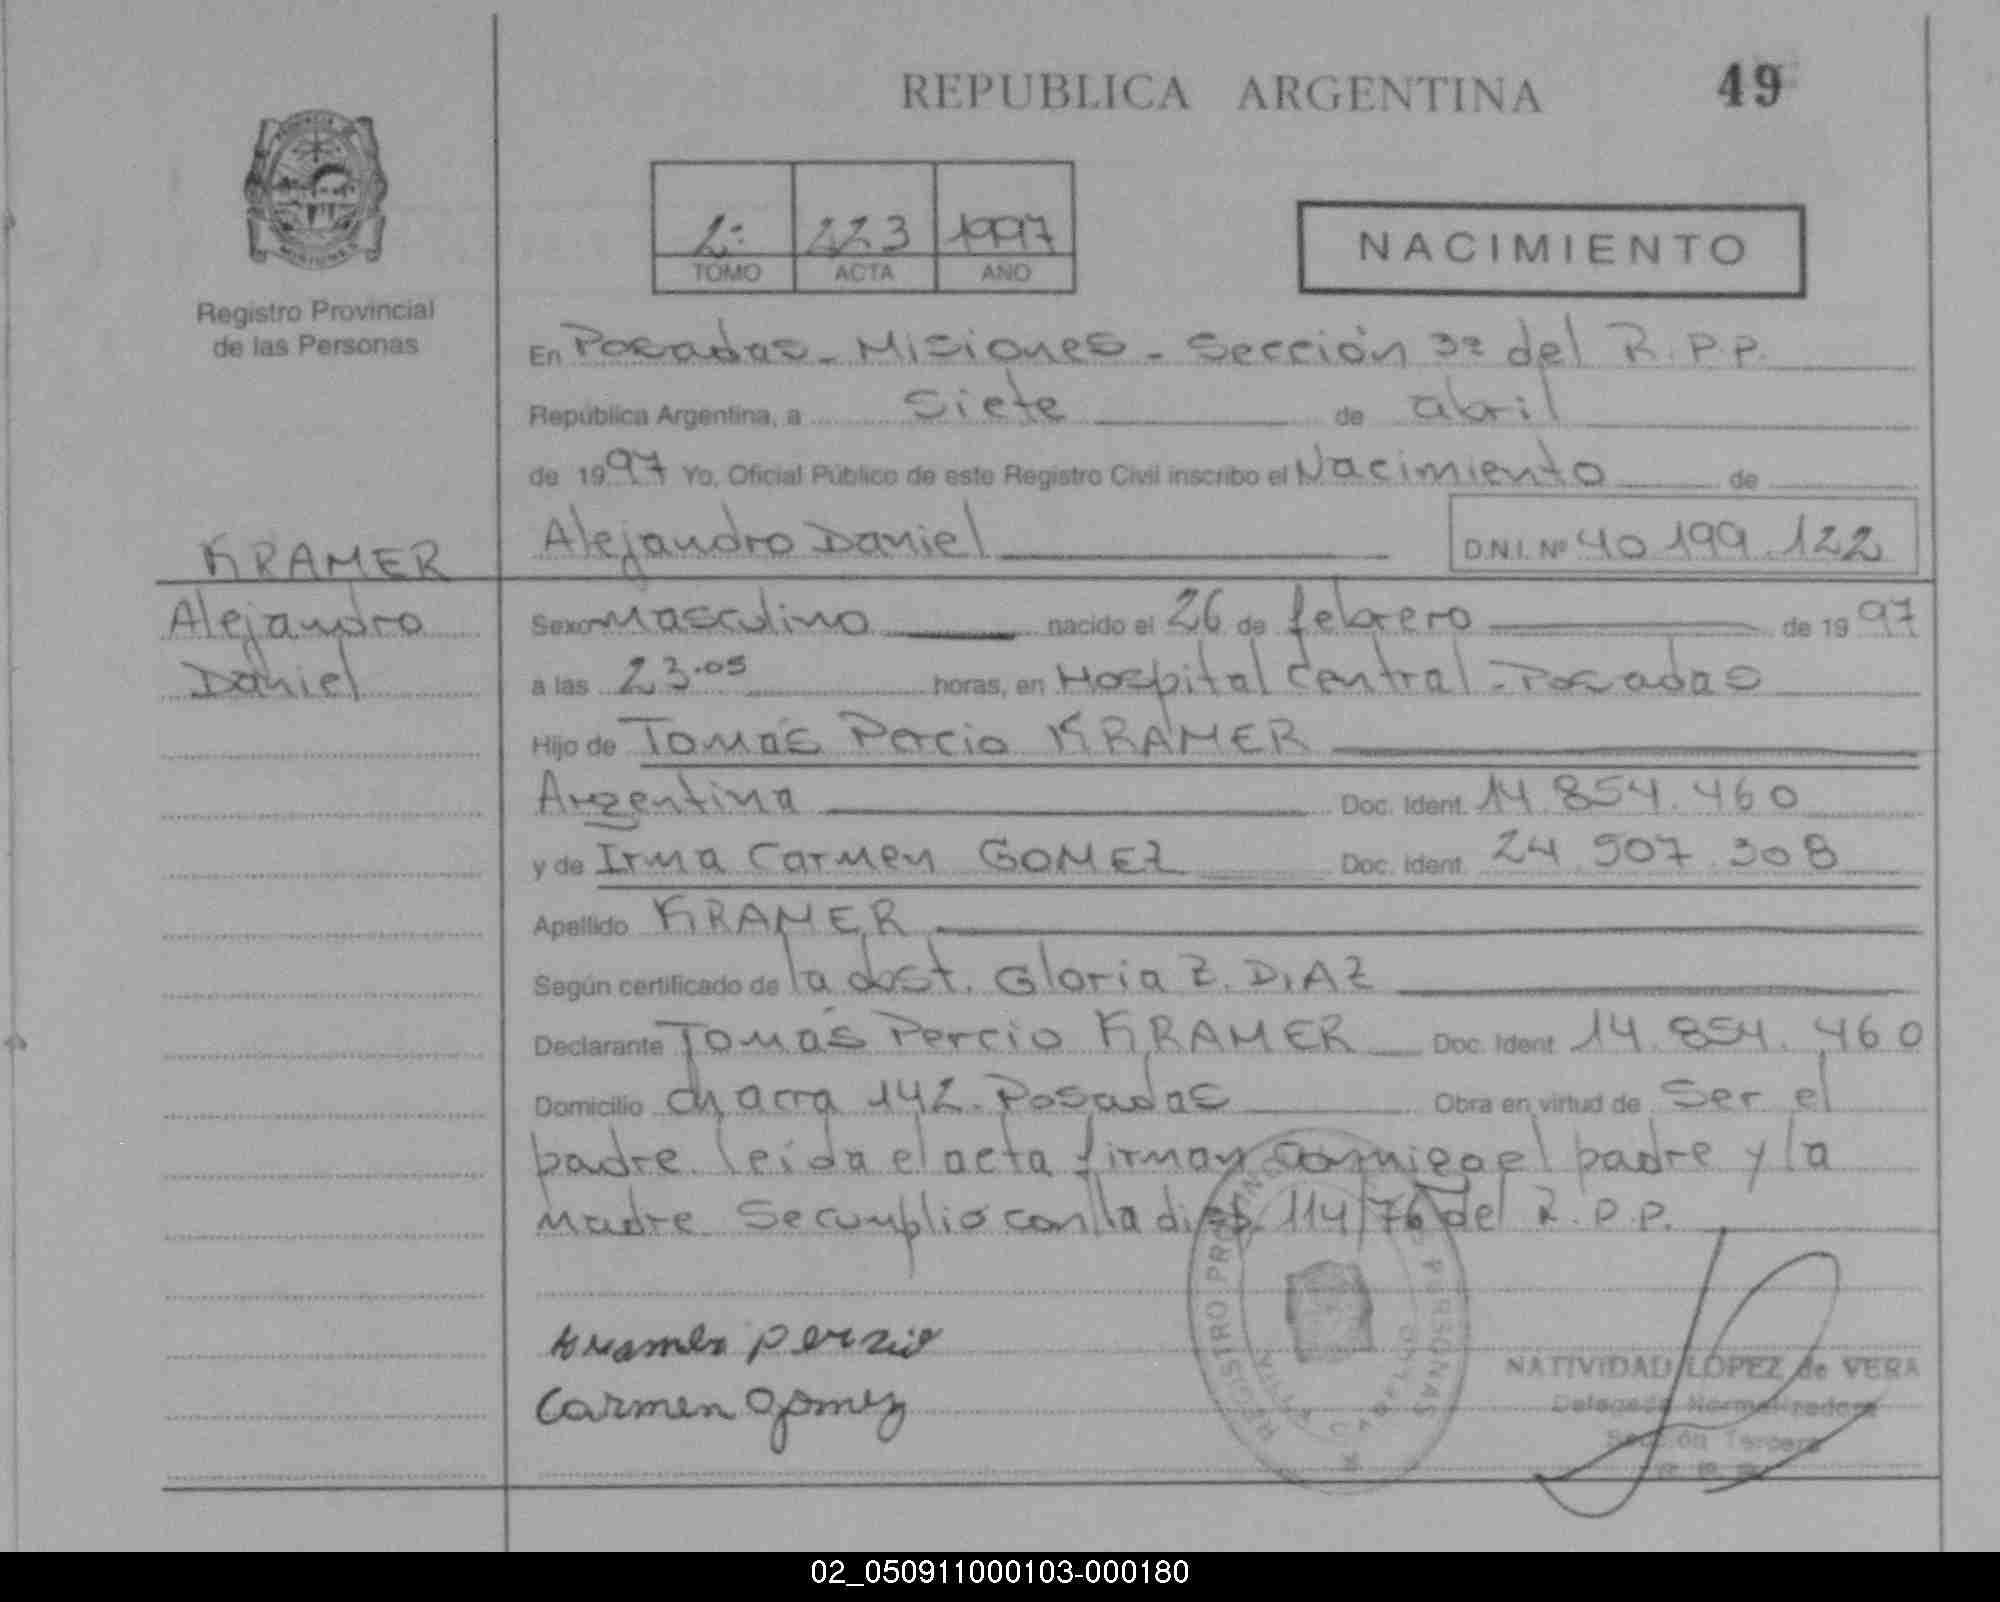 REPUBLICA ARGENTINA
49
2º 223 1997
TOMO ACTA AÑO
NACIMIENTO
Registro Provincial
de las Personas
En Posadas - Misiones - Sección 3ª del R.P.P.
República Argentina, a siete de abril
de 1997 Yo, Oficial Público de este Registro Civil inscribo el Nacimiento de
Alejandro Daniel D.N.I. Nº 40.199.122
KRAMER
Alejandro
Daniel
Sexo masculino nacido el 26 de febrero de 1997
a las 23.05 horas, en Hospital Central - Posadas
Hijo de Tomás Percio KRAMER
Argentina Doc. Ident. 14.854.460
y de Irma Carmen GOMEZ Doc. Ident. 24.507.308
Apellido KRAMER
Según certificado de la obst. Gloria Z. DIAZ
Declarante Tomás Percio KRAMER Doc. Ident 14.854.460
Domicilio chacra 142. Posadas Obra en virtud de ser el
padre. leída el acta firman conmigo el padre y la
madre. Se cumplió con la disp. 114/76 del R.P.P.
Kramer Perzio
Carmen Gomez
REGISTRO PROVINCIAL PERSONAS
NATIVIDAD LOPEZ de VERA
Delegada Normalizadora
Sección Tercera
02_050911000103-000180